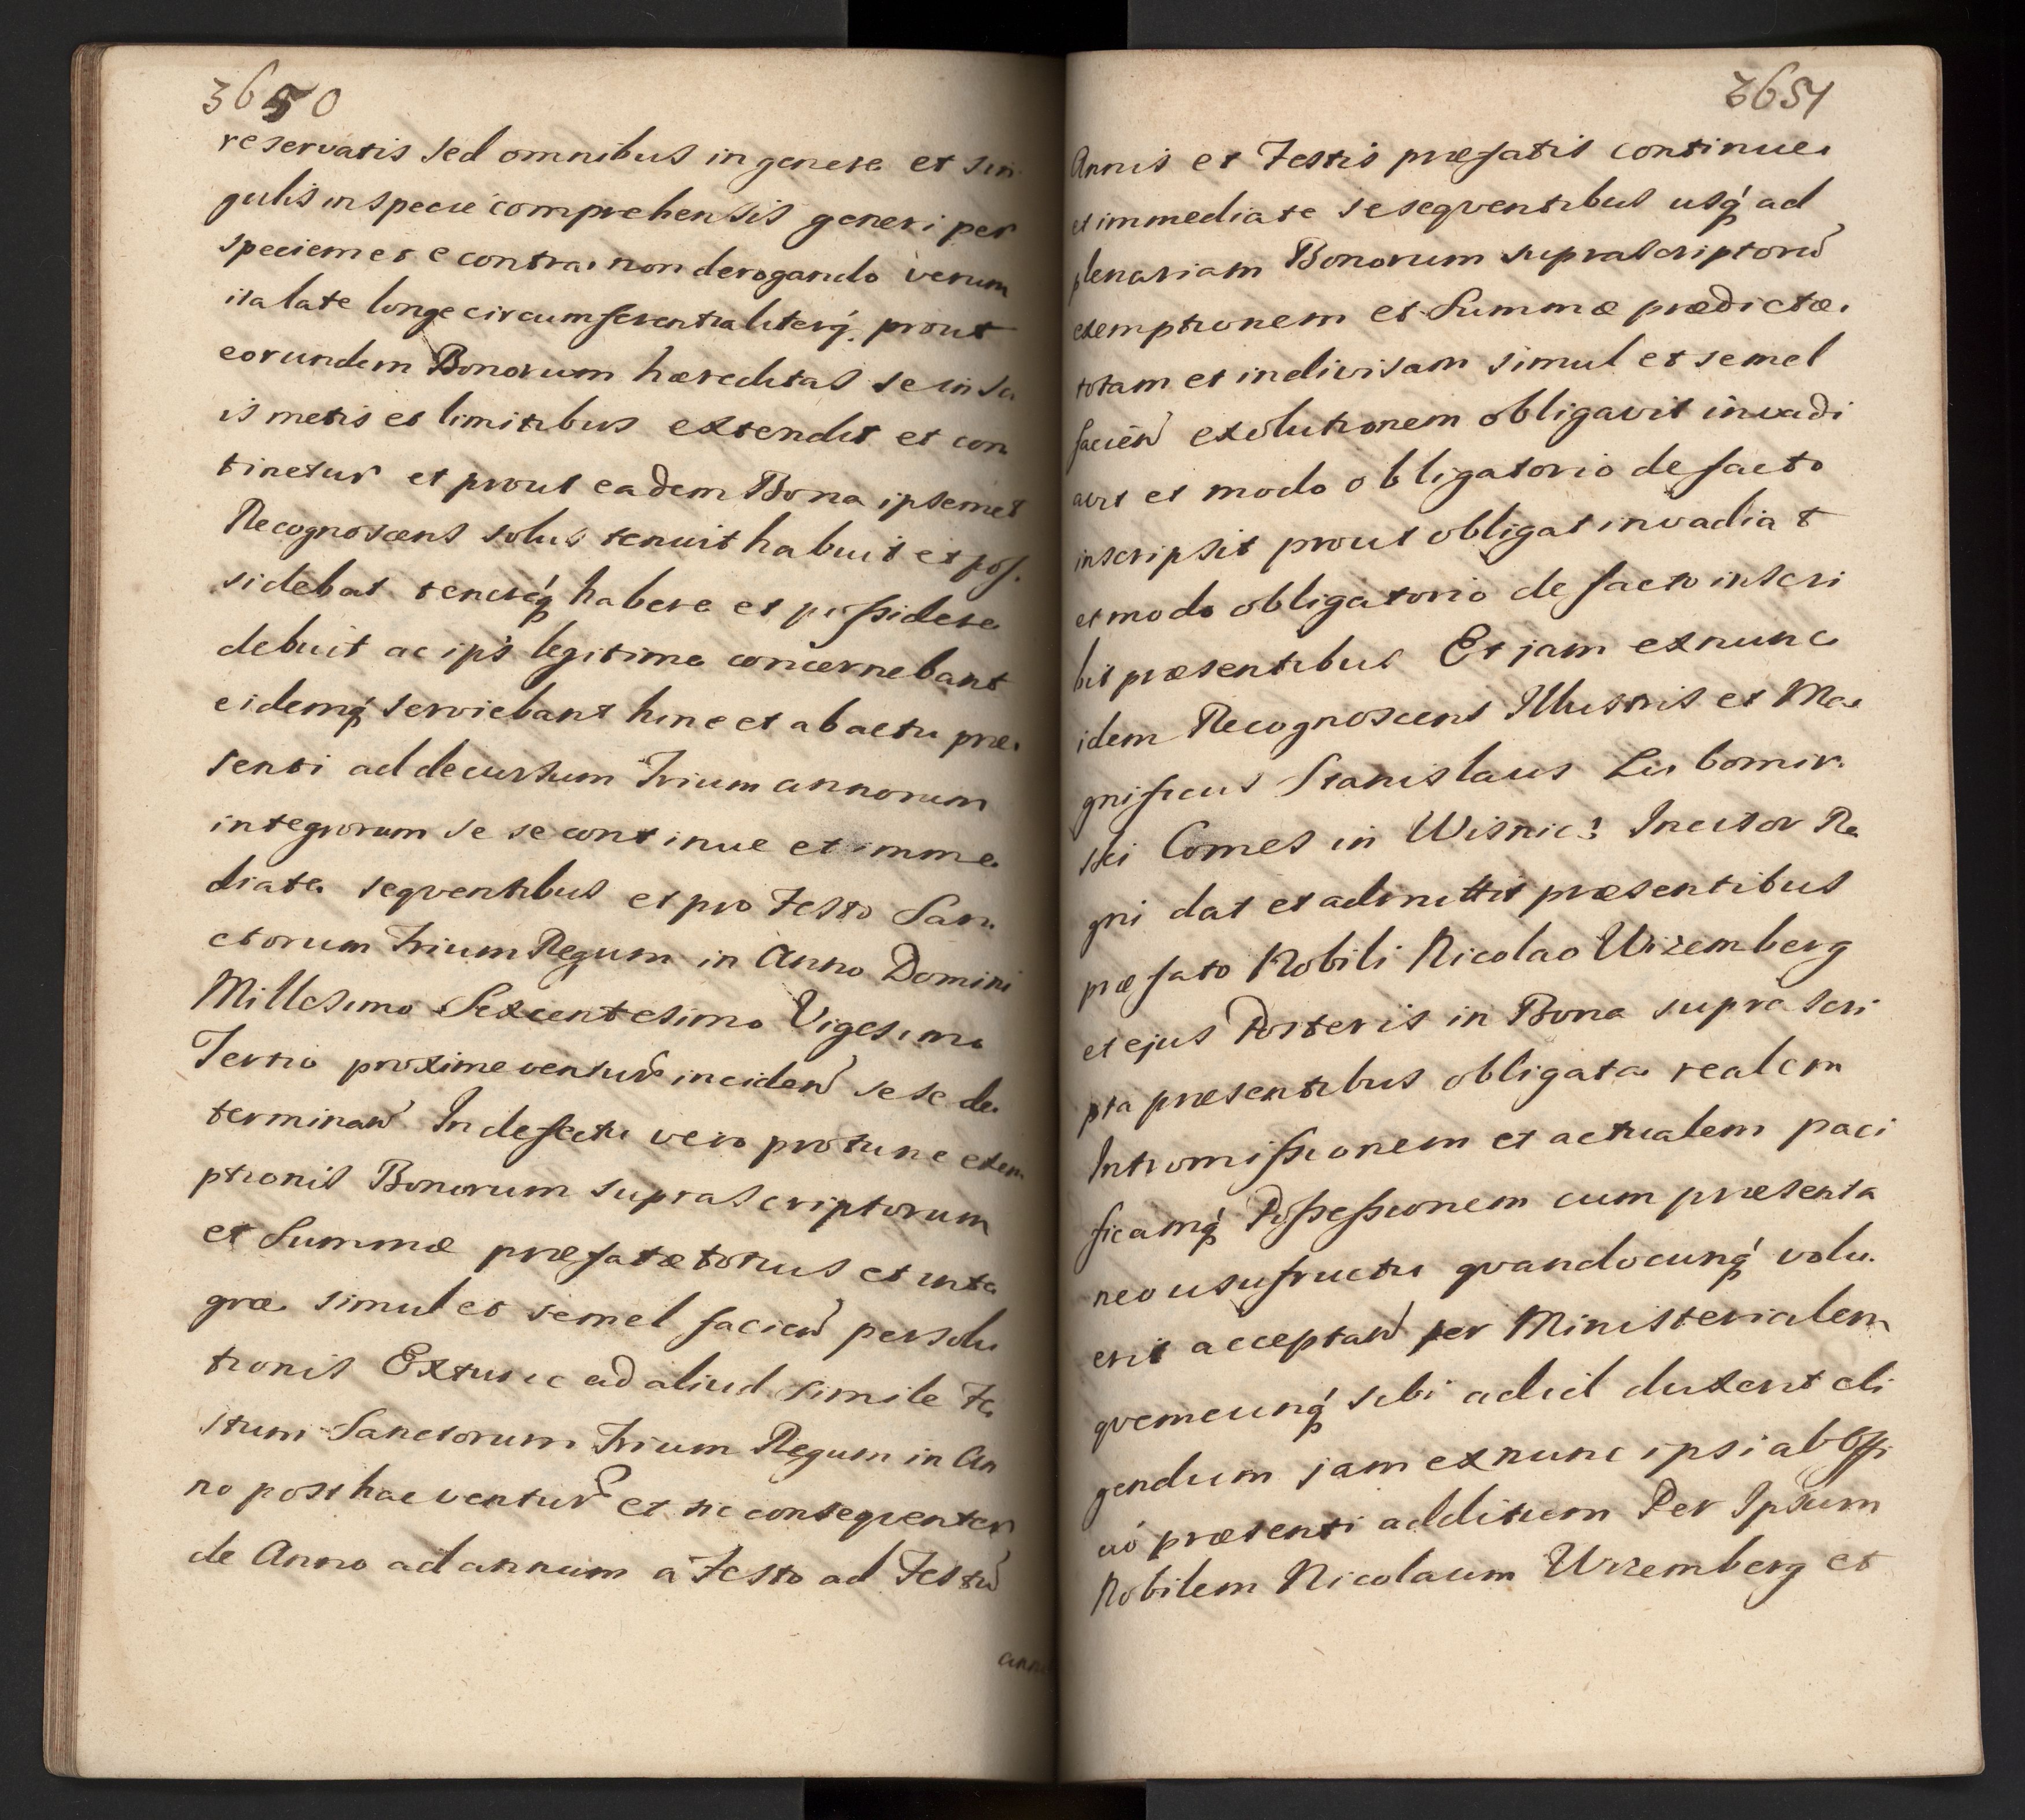 3650
reservatis sed omnibus in genere et sin
gulis in specie comprehensis generi per
speciem et e contra non derogando verum
ita late longe circumferentialiterq́ prout
eorundem Bonorum hæreditas se in su
is metis et limitibus extendit et con
tinetur et prout eadem Bona ipsemet
Recognoscens solus tenuit habuit et pos.
sidebat tenereq́ habere et possidere
debuit ac ips legitime concernebant
eidemq́ serviebant hinc et ab actu præ
senti ad decursum Trium annorum
integrorum se se continue et imme
diate seqventibus et pro Festo San
ctorum Trium Regum in Anno Domini
Millesimo Sexcentesimo Vigesimo
Tertio proxime ventur inciden sese de
terminan In defectu vero pro tunc exem
ptionis Bonorum suprascriptorum
et Summæ præfatæ totius et inte
græ simul et semel facien persolu
tionis Extunc ad aliud simile Fe
stum Sanctorum Trium Regum in An
no post hac ventur et sic conseqventer
de Anno ad annum a Festo ad Festu
3651
Annis et Festis præfatis continue
et immediate se seqventibus usq́ ad
plenariam Bonorum suprascriptoru
exemptionem et Summæ prædictæ
totam et indivisam simul et semel
facien exolutionem obligavit invadi
avit et modo obligatorio de facto
inscripsit prout obligat invadiat
et modo obligatorio de facto inscri
bit præsentibus Et jam exnunc
idem Recognoscens Illustris et Ma
gnificus Stanislaus Lubomir
ski Comes in Wisnic: Incisor Re
gni dat et admittit præsentibus
præfato Nobili Nicolao Wizemberg
et ejus Posteris in Bona supra scri
pta præsentibus obligata realem
Intromissionem et actualem paci
ficamq́ Possessionem cum præsenta
neo usufructu qvandocunq́ volu.
erit acceptan per Ministerialem
qvemcunq́ sibi ad id duxerit eli
gendum jam exnunc ipsi ab Offi
cio præsenti additum Per Ipsum
Nobilem Nicolaum Wizemberg et